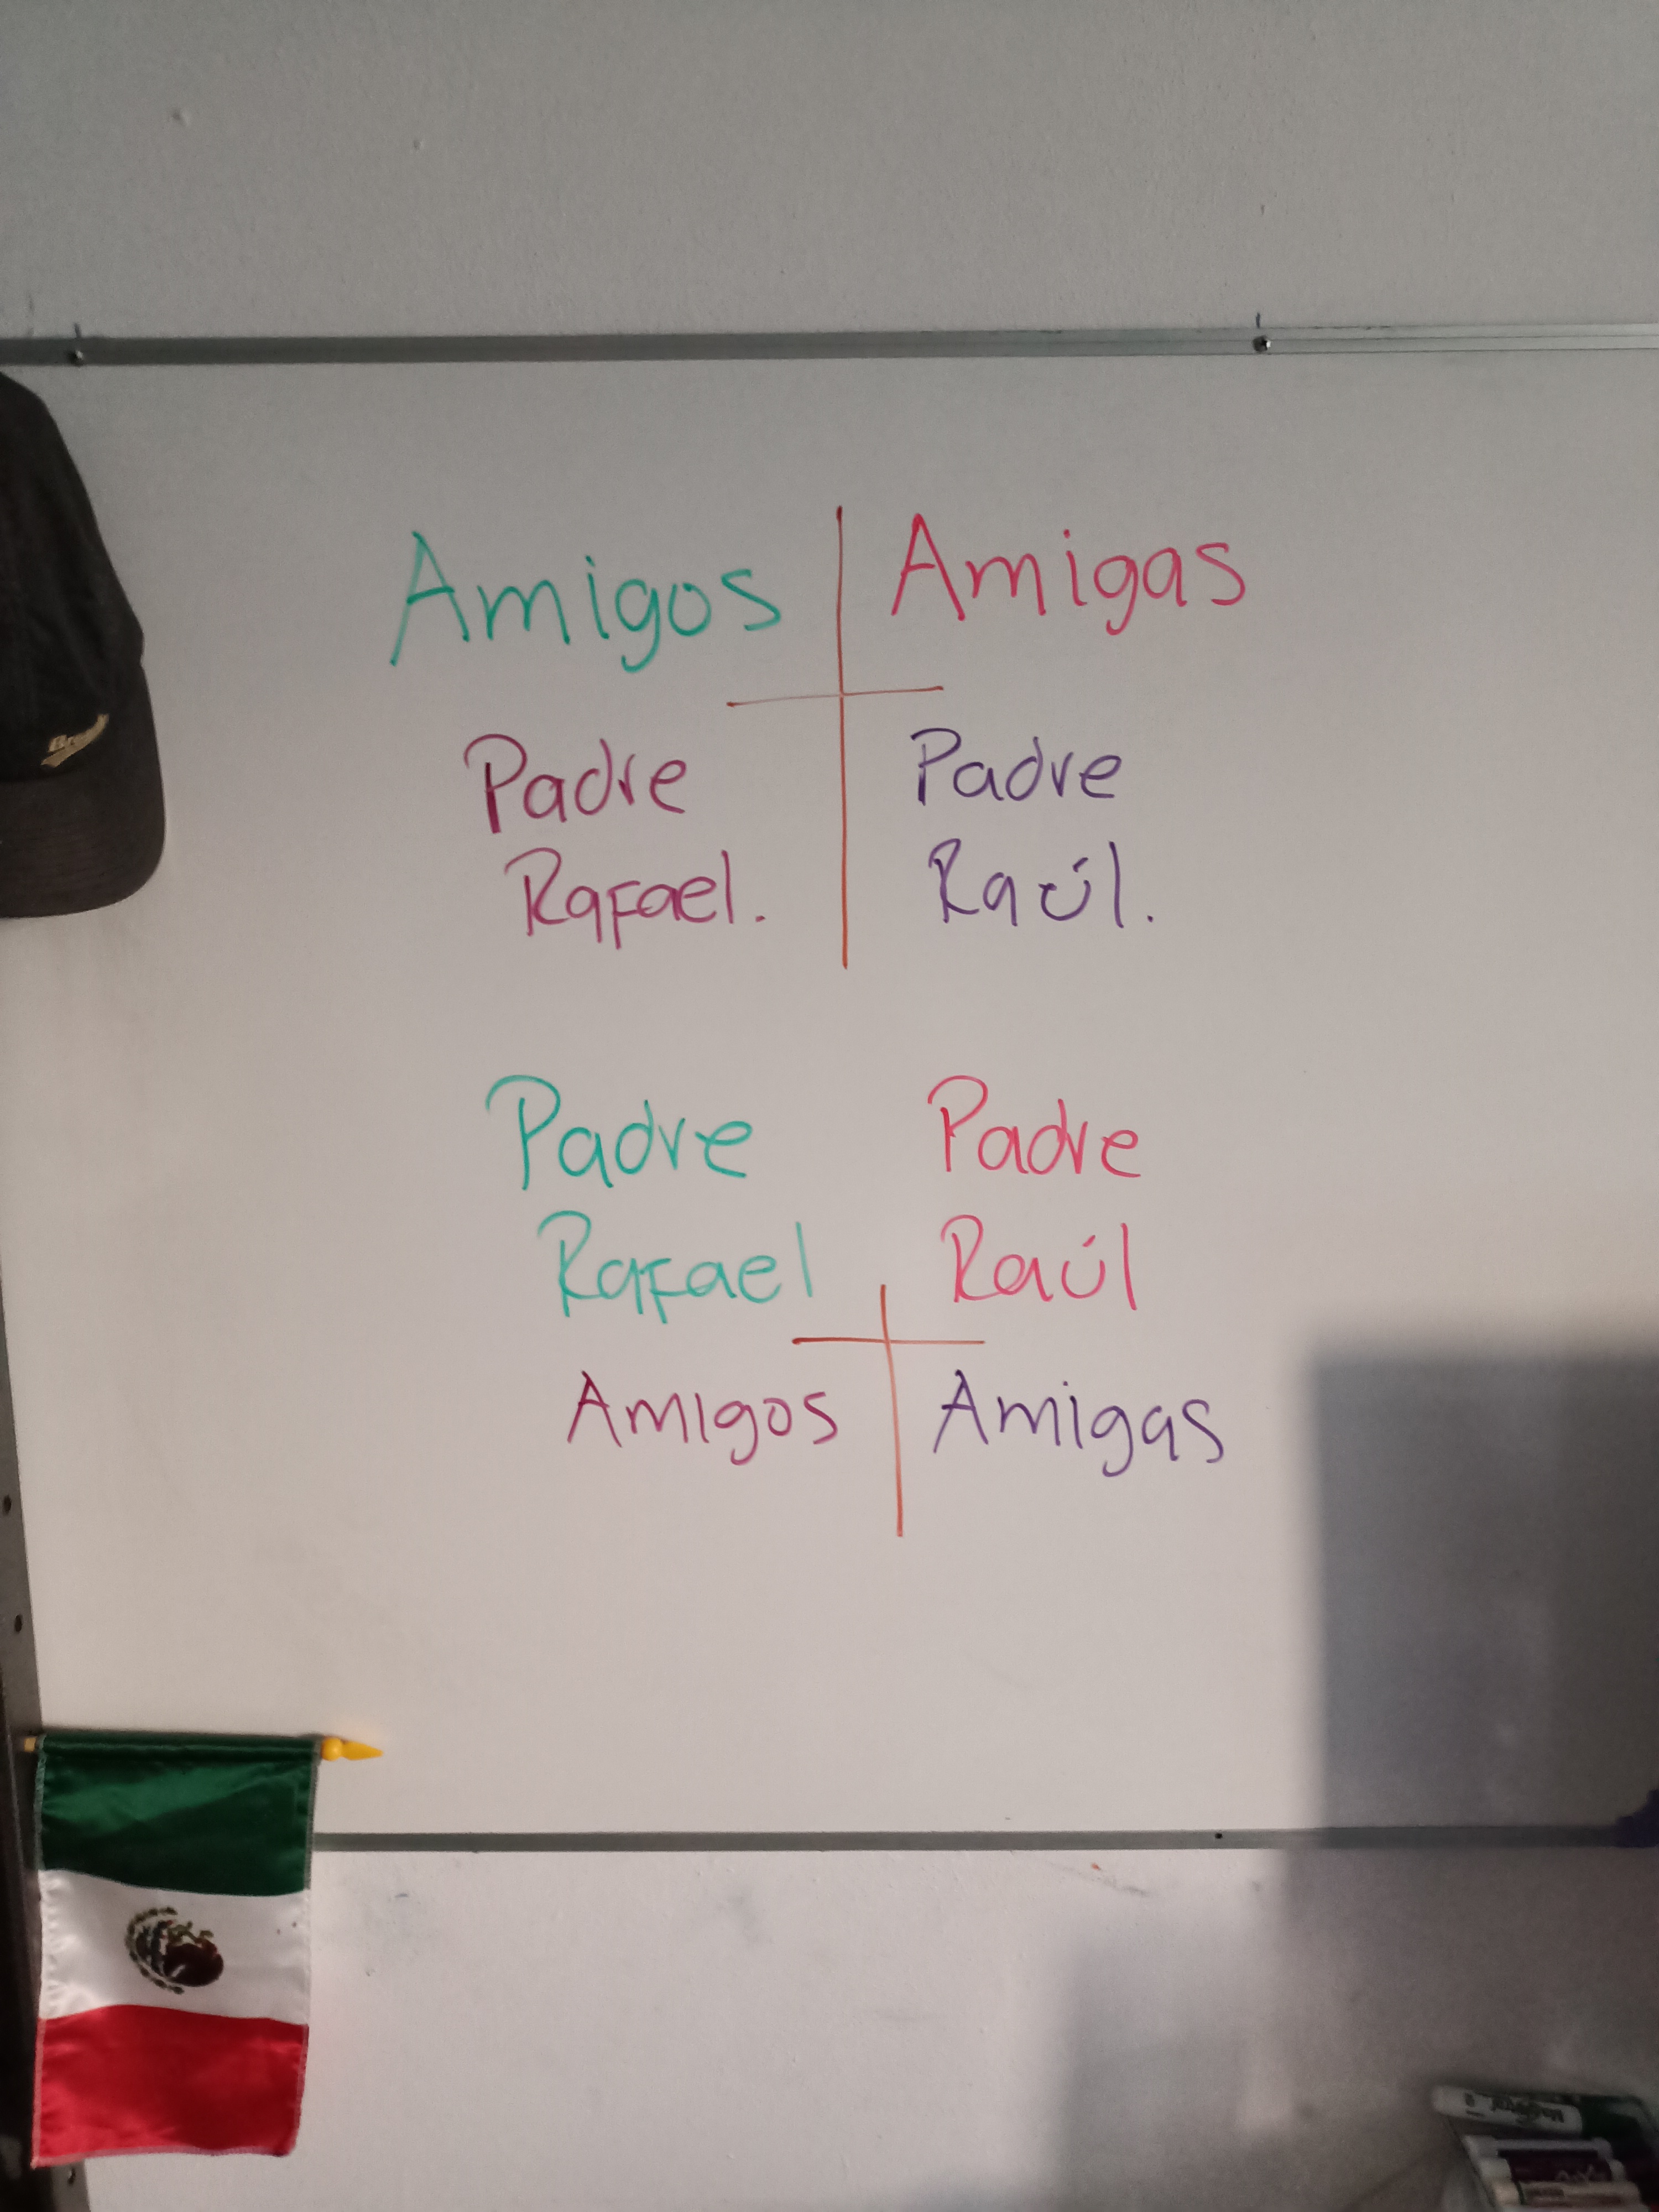 Amigos | Amigas
Padre Padre
Rafael. Raúl.
Padre Padre
Rafael Raúl
Amigos | Amigas